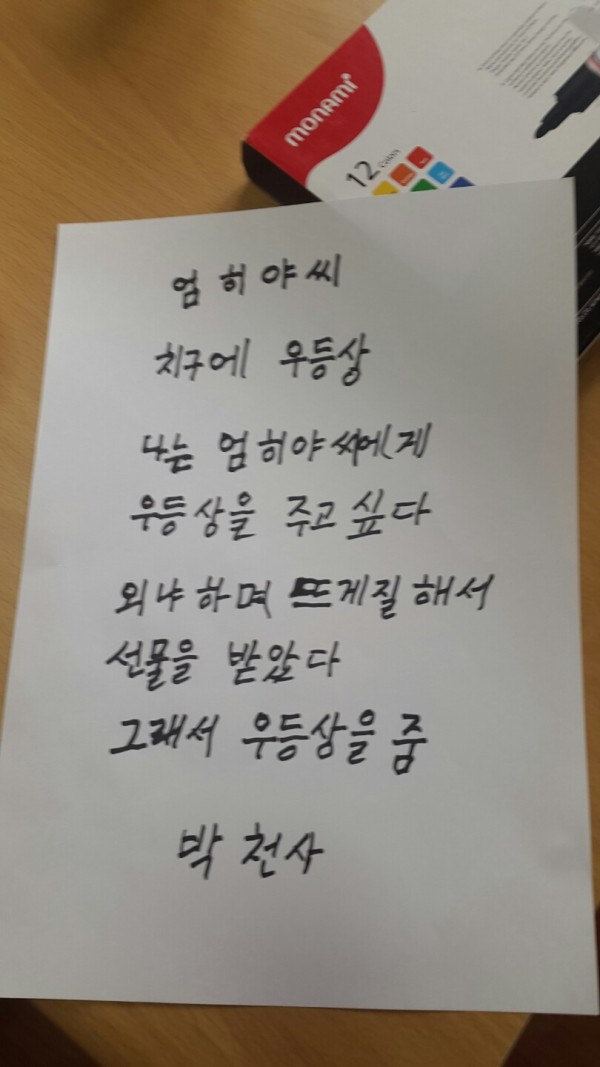 monami
12 Colors
엄히야씨
치구에 우등상
나는 엄히야씨에게
우등상을 주고싶다
외냐하며 뜨게질해서
선물을 받았다
그래서 우등상을 줌
박천사